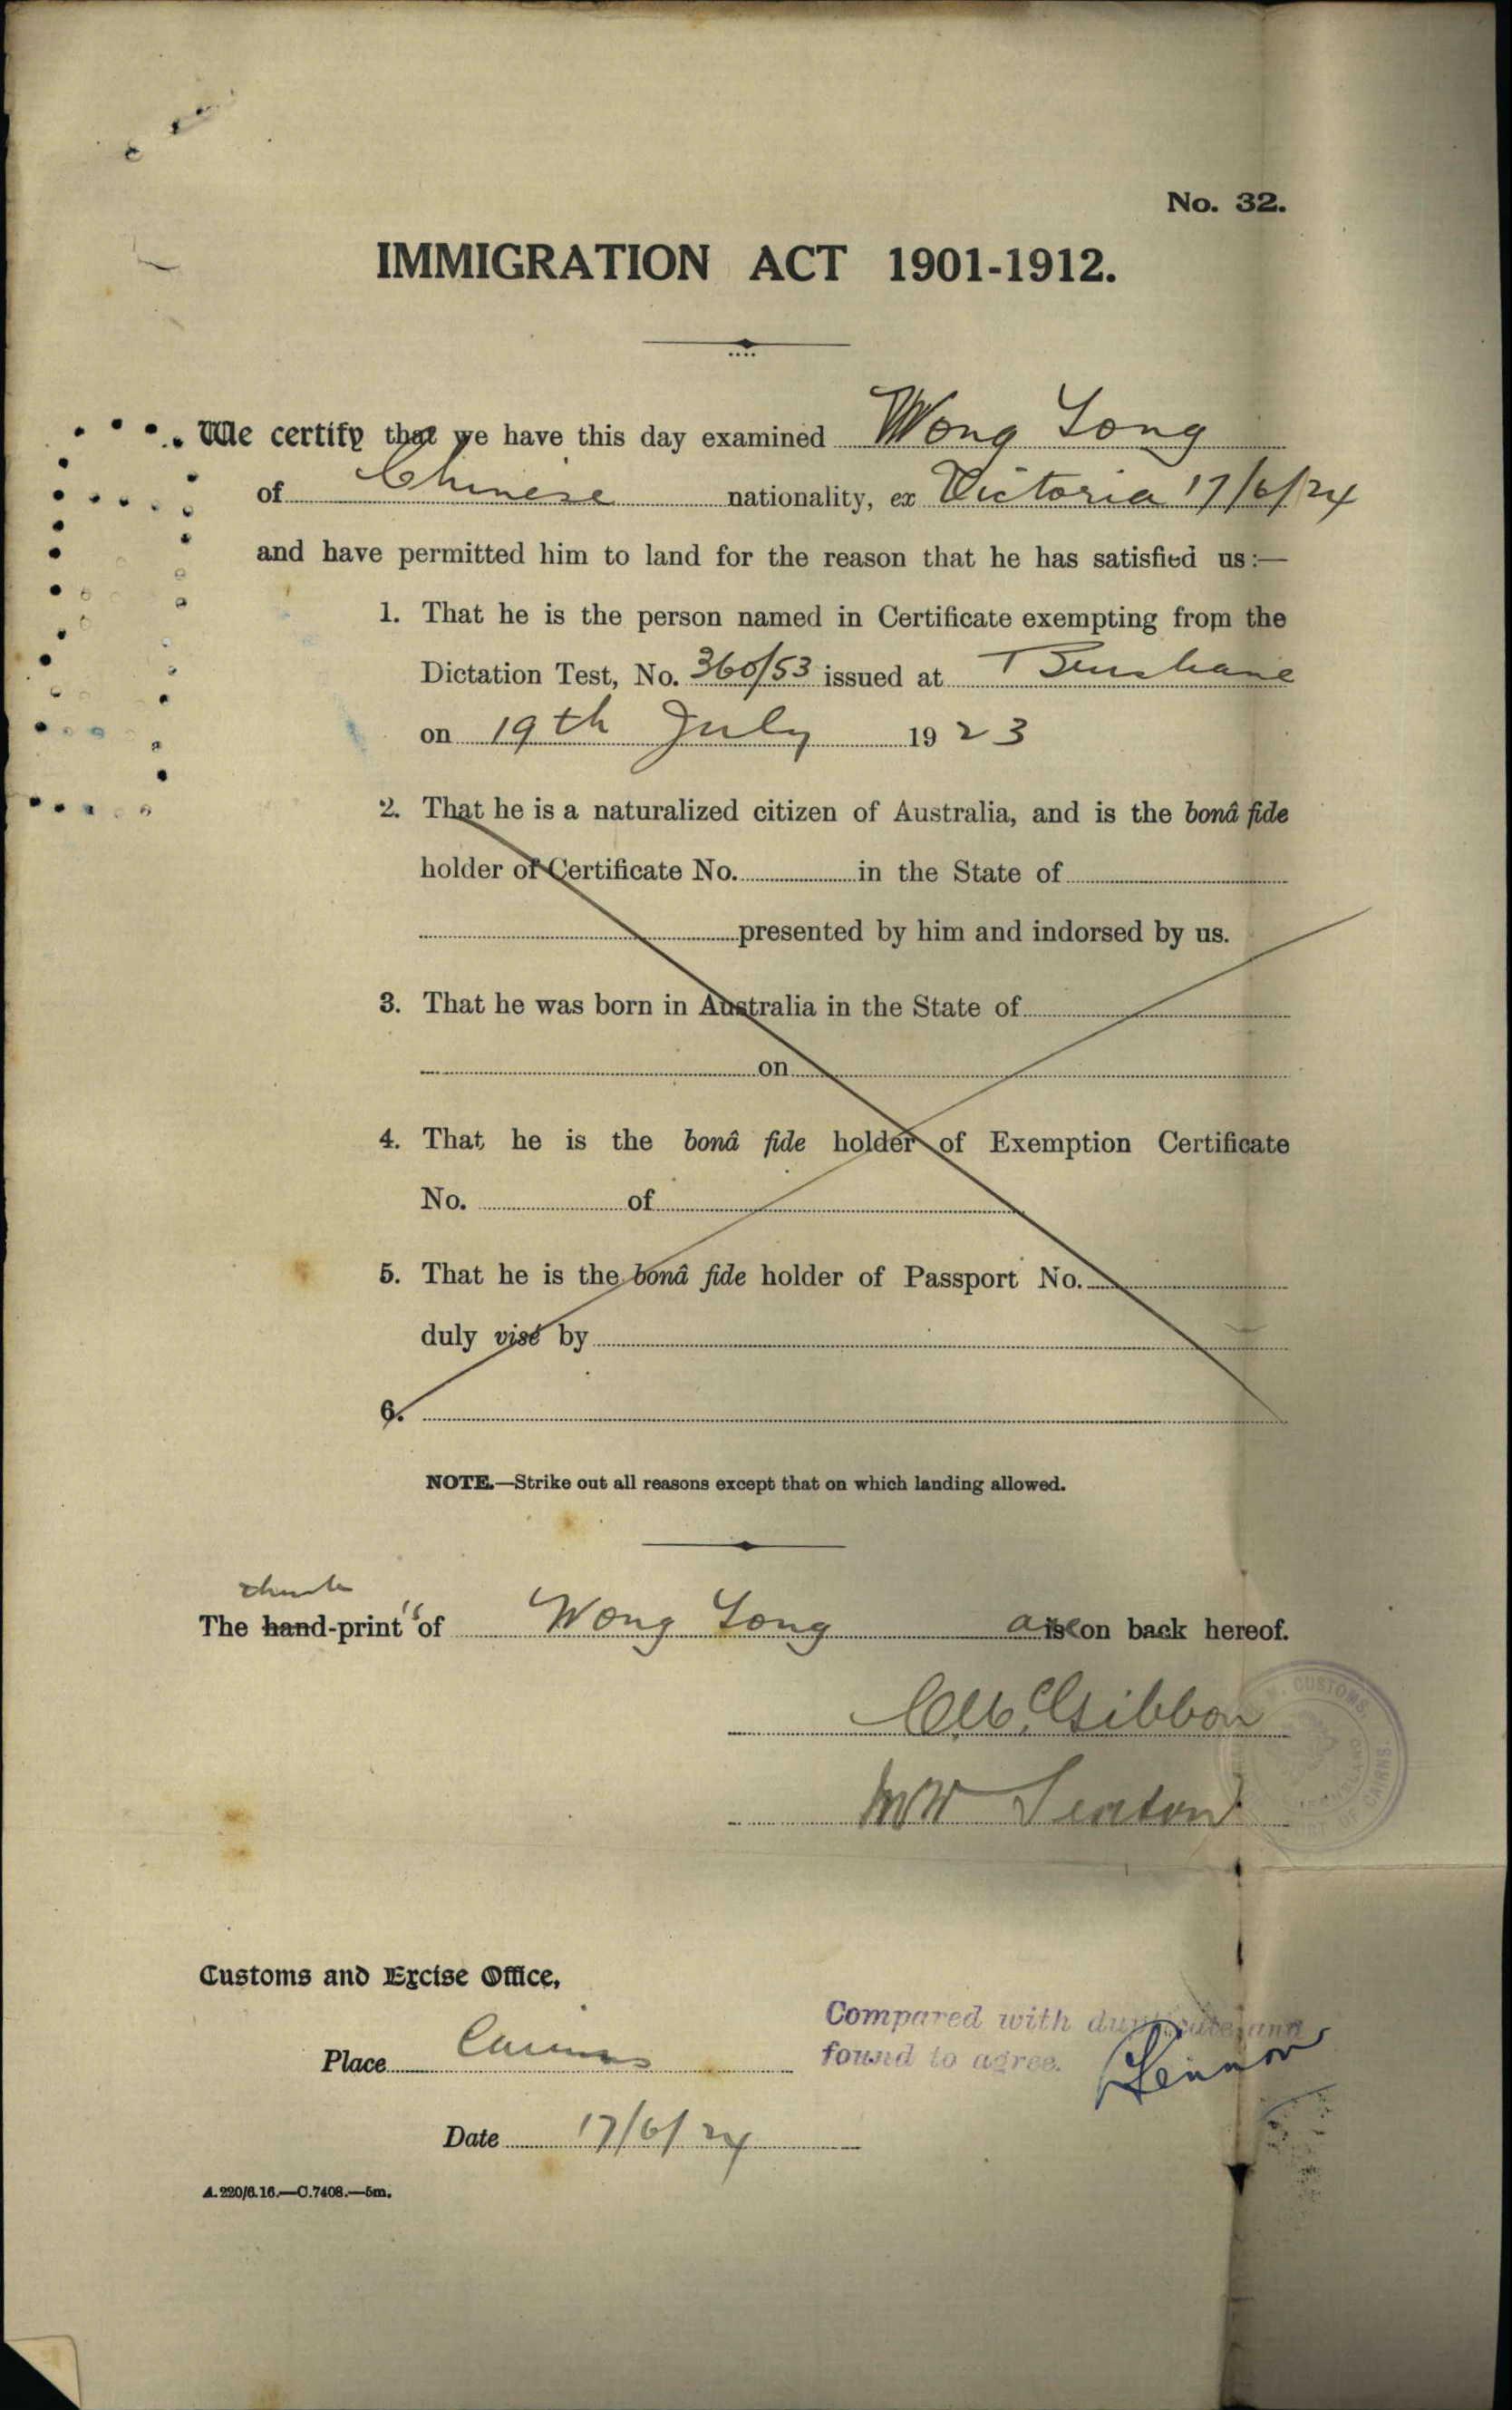 No. 32.
IMMIGRATION ACT 1901-1912.
We certify that we have this day examined Wong Song
of Chinese nationality, ex Victoria 17/6/24
and have permitted him to land for the reason that he has satisfied us:—
1. That he is the person named in Certificate exempting from the
Dictation Test, No. 360/53 issued at Brisbane
on 19th July 1923
2. That he is a naturalized citizen of Australia, and is the bonâ fide
holder of Certificate No. in the State of
presented by him and indorsed by us.
3. That he was born in Australia in the State of
on
4. That he is the bonâ fide holder of Exemption Certificate
No. of
5. That he is the bonâ fide holder of Passport No.
duly visé by
6.
NOTE.—Strike out all reasons except that on which landing allowed.
thumb
The hand-prints of Wong Song are on back hereof.
Gibbon
CUSTOMS.
CAIRNS.
MW Seaton
Customs and Excise Office,
Compared with duplicate and
Place Cairns found to agree.
Lennon
Date 17/6/24
A.220/6.16.—C.7408.—5m.